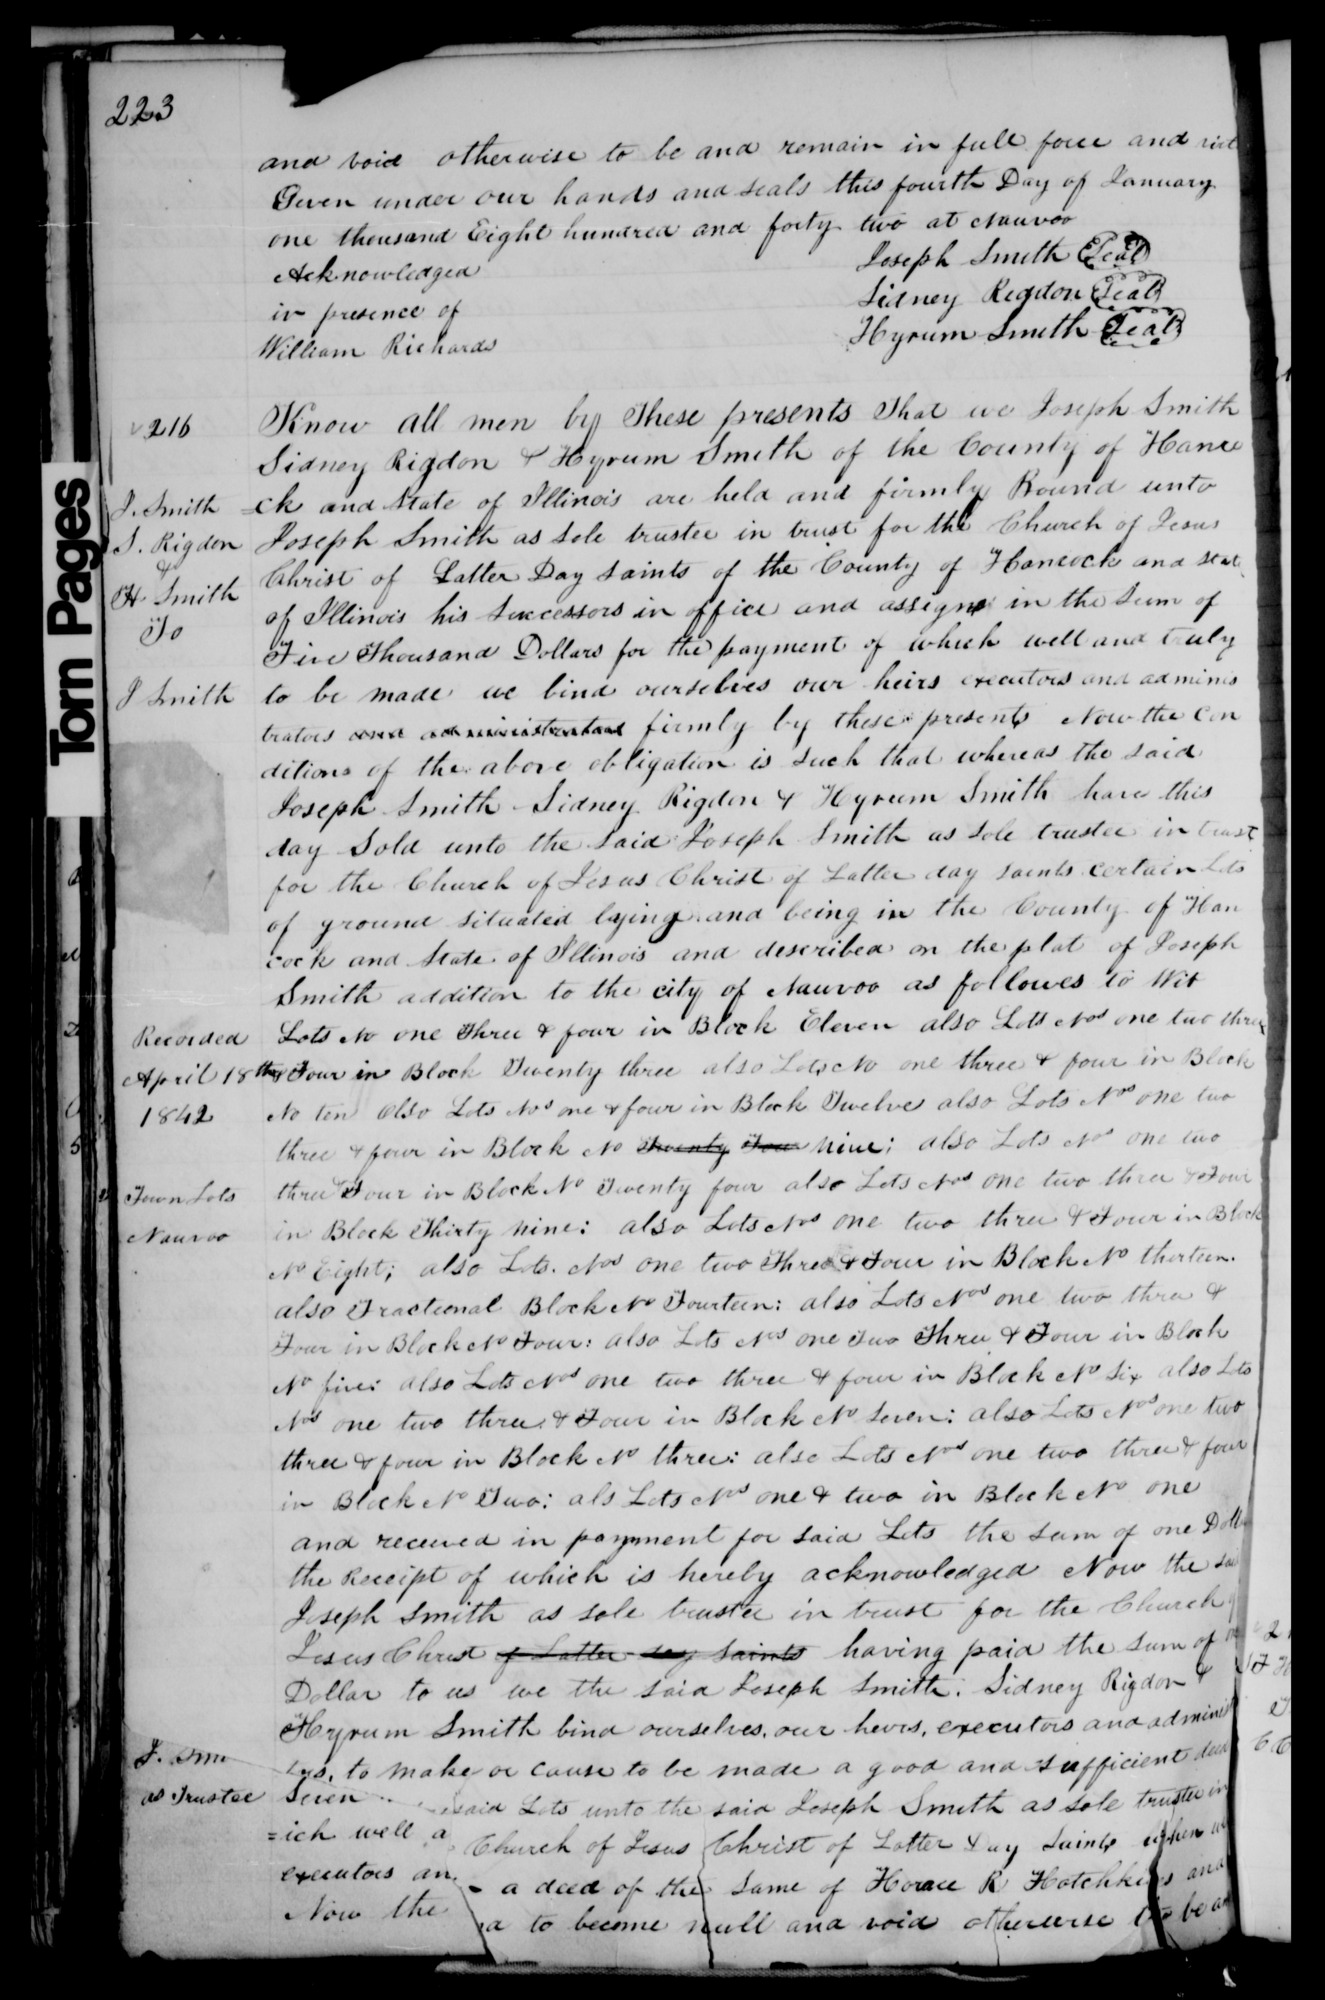 223
and void otherwise to be and remain in full force and
Given under our hands and seals this fourth Day of January
one thousand Eight hundred and forty two at Nauvoo
Acknowledged
in presence of
William Richards
Joseph Smith Seal
Sidney Rigdon Seal
Hyrum Smith Seal
216
J. Smith
S. Rigdon
&
H Smith
To
J Smith
Torn Pages
Know all men by These presents That we Joseph Smith
Sidney Rigdon & Hyrum Smith of the County of Hanco
=ck and State of Illinois are held and firmly Bound unto
Joseph Smith as sole trustee in trust for the Church of Jesus
Christ of Latter Day Saints of the County of Hancock and stat
of Illinois his Successors in office and assigns in the Sum of
Five Thousand Dollars for the payment of which well and truly
to be made we bind ourselves our heirs executors and adminis
trators and administrators firmly by these presents Now the Con
ditions of the above obligation is such that whereas the said
Joseph Smith Sidney Rigdon & Hyrum Smith have this
day Sold unto the said Joseph Smith as sole trustee in trust
for the Church of Jesus Christ of Latter day saints certain Lots
of ground situated lying and being in the County of Han
cock and State of Illinois and described on the plat of Joseph
Smith addition to the city of Nauvoo as followes to Wit
Recorded
April 18th
1842
Town Lots
Nauvoo
Lots No one Three & four in Block Eleven also Lots Nos one two three
& Four in Block Twenty three also Lots No one three & four in Block
No ten also Lots Nos one & four in Block Twelve also Lots Nos one two
three & four in Block No Twenty Four Nine; also Lots Nos one two
three & Four in Block No Twenty four also Lots Nos one two three & Four
in Block Thirty Nine: also Lots Nos one two three & Four in Block
No Eight; also Lots. Nos one two Three & Four in Block No thirteen.
also Fractional Block No Fourteen: also Lots Nos one two three &
Four in Block No Four: also Lots Nos one Two Three & Four in Block
No five: also Lots Nos one two three & four in Block No Six also Lots
Nos one two three & Four in Block No Seven: also Lots Nos one two
three & four in Block No three: also Lots Nos one two three & four
in Block No Two: als Lots Nos one & two in Block No one
and received in payment for said Lots the sum of one Doll
the Receipt of which is hereby acknowledged Now the said
Joseph Smith as sole trustee in trust for the Church of
Jesus Christ of Latter day Saints having paid the sum of one
Dollar to us we the said Joseph Smith: Sidney Rigdon &
Hyrum Smith bind ourselves, our heirs, executors and administ
to make or cause to be made a good and sufficient deed
said Lots unto the said Joseph Smith as sole trustee in
Church of Jesus Christ of Latter Day Saints when we
a deed of the same of Horace R Hotchkiss and
to become null and void otherwise to be an
J. Smi
as Trustee
Seven
=ich well a
executors an
Now the